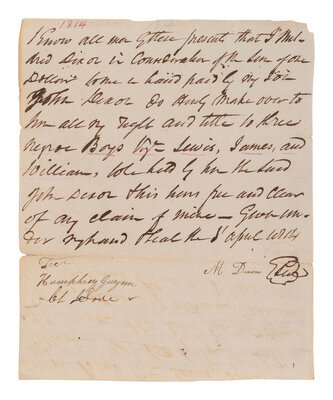 1814
Know all men by these presents that I Mil-
dred Dixon in Consideration of the Sum of one
Dollar to me in hand paid by my Son
John Dixon do hereby make over to
him all my right and title to three
negroe Boys Viz Lewis, James, and
William, to be held by him the said
John Dixon & his heirs free and Clear
of any claim of mine — Given un-
der my hand & Seal the 8 April 1814
Test
Humphrey Gwynn
M Dixon Seal